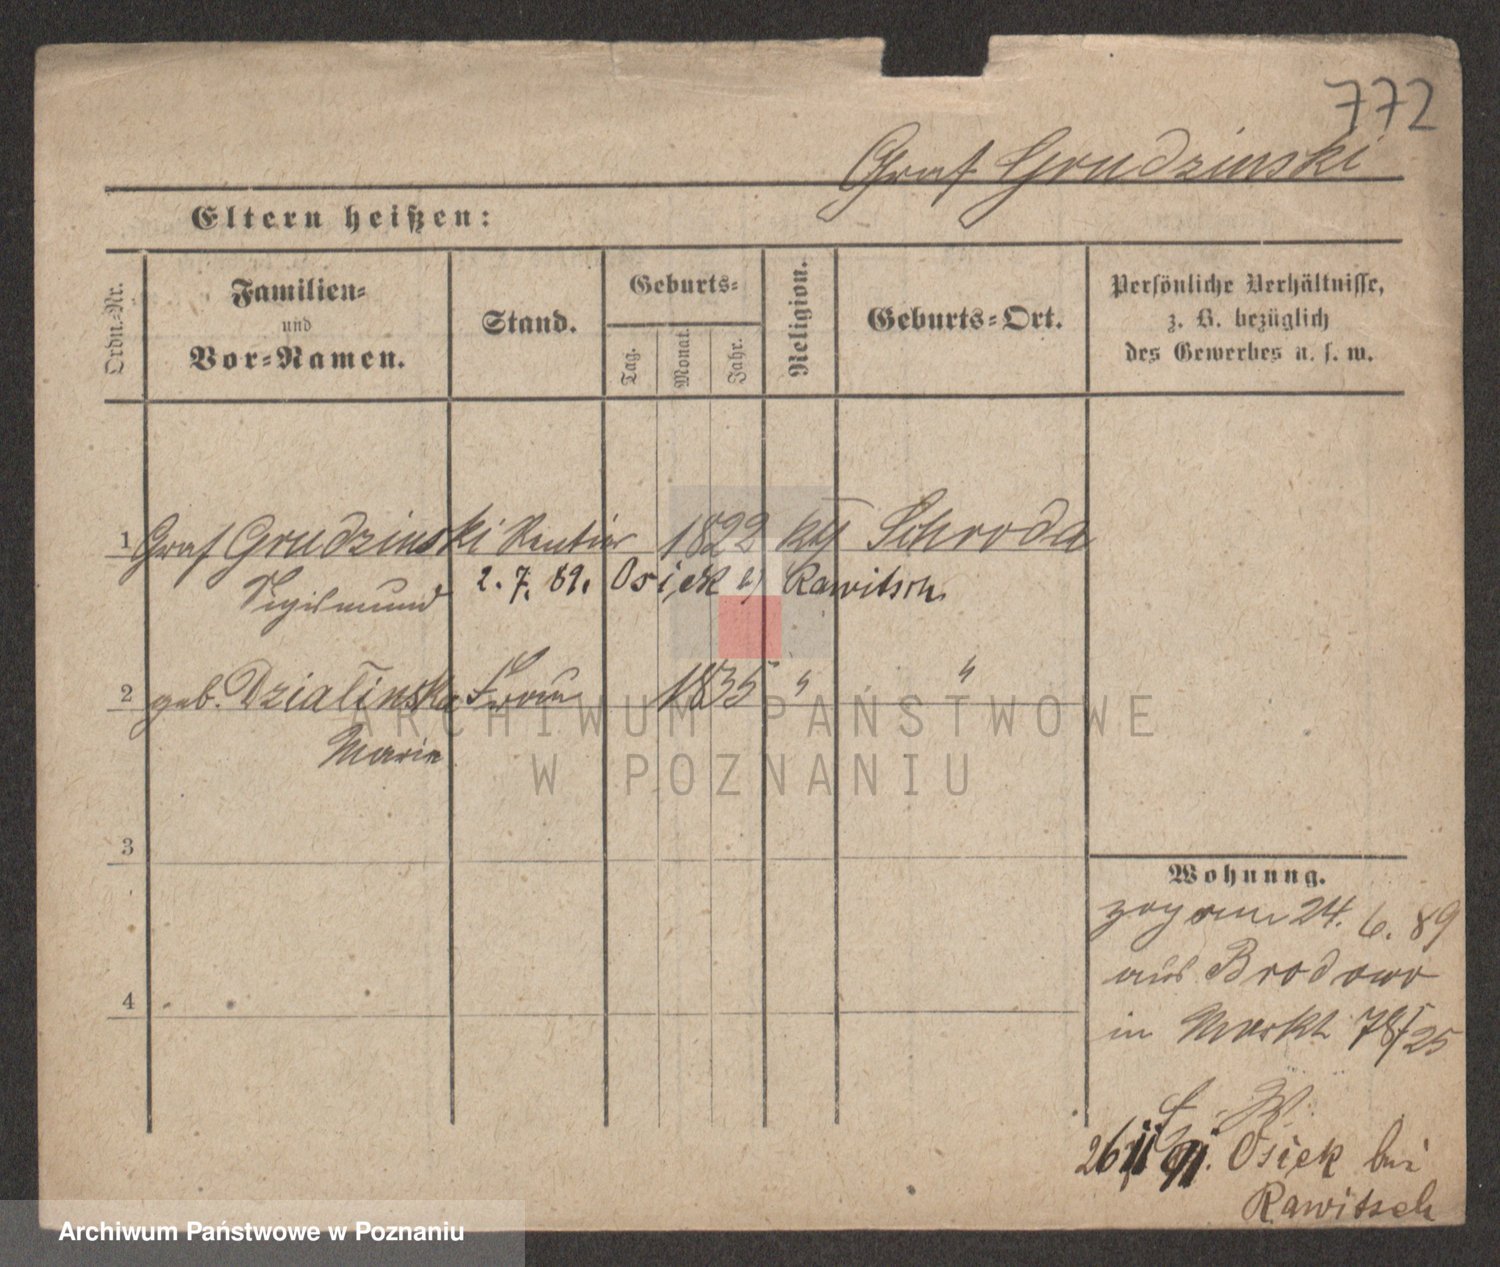 772
Graf Grudzinski
Eltern heißen:
Ordn.-Nr.
Familien-
und
Vor-Namen.
Stand.
Geburts-
Tag.
Monat.
Jahr.
Religion.
Geburts-Ort.
Persönliche Verhältnisse,
z. B. bezüglich
des Gewerbes u. s. w.
1 Graf Grudzinski Rentier 1822 kth Schroda
Sigismund 2. 7. 89. Osiek Rawitsch
2 geb. Dzialinska Frau 1835 " "
Marie
3
4
Wohnung.
zog am 24. 6. 89
aus Brodowo
in Markt 78/25
26 II 91. Osiek bei
Rawitsch
ARCHIWUM PAŃSTWOWE
W POZNANIU
Archiwum Państwowe w Poznaniu